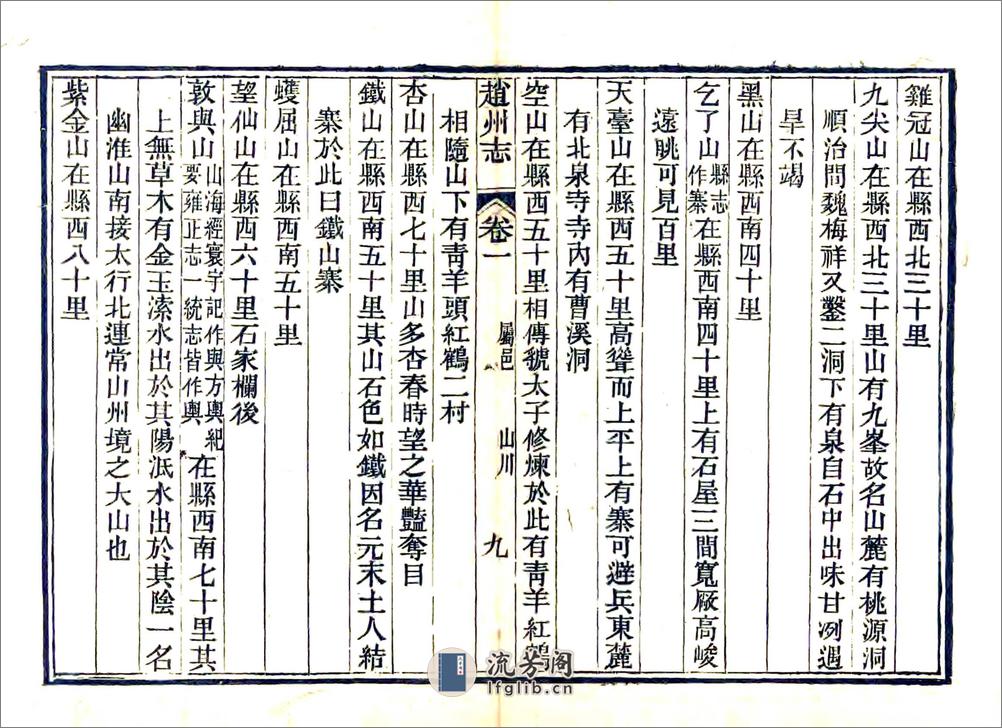 雞冠山在縣西北三十里
九尖山在縣西北三十里山有九峯故名山麓有桃源洞
順治間魏梅祥又鑿二洞下有泉自石中出味甘冽遇
旱不竭
黑山在縣西南四十里
乞了山縣志作寨在縣西南四十里上有石屋三間寬厰高峻
遠眺可見百里
天臺山在縣西五十里高聳而上平上有寨可避兵東麓
有北泉寺寺內有曹溪洞
空山在縣西五十里相傳虢太子修煉於此有靑羊紅鶴
趙州志 卷一 屬邑 山川 九
相隨山下有靑羊頭紅鶴二村
杏山在縣西七十里山多杏春時望之華豔奪目
鐵山在縣西南五十里其山石色如鐵因名元末土人結
寨於此曰鐵山寨
蠖屈山在縣西南五十里
望仙山在縣西六十里石家欄後
敦與山山海經寰宇記作與方輿紀要雍正志一統志皆作輿在縣西南七十里其
上無草木有金玉溹水出於其陽泜水出於其陰一名
幽淮山南接太行北連常山州境之大山也
紫金山在縣西八十里
流芳閣
lfglib.cn